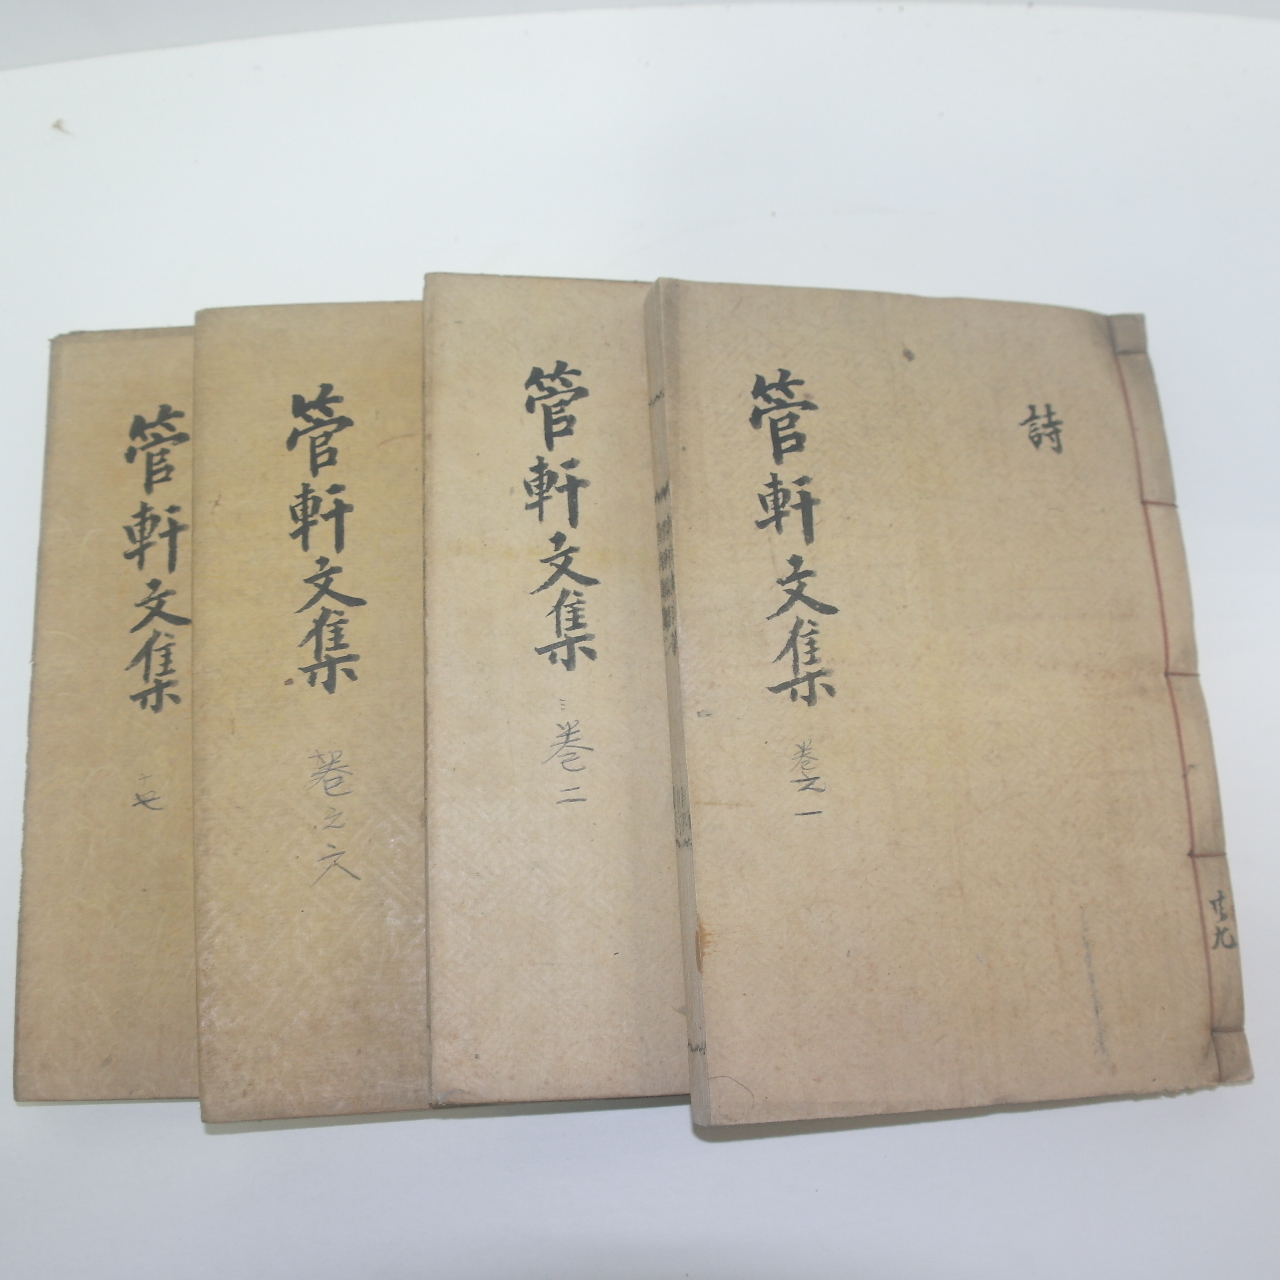 詩
管軒文集 卷之一
管軒文集 卷二
管軒文集
卷之六
管軒文集
十七
共九